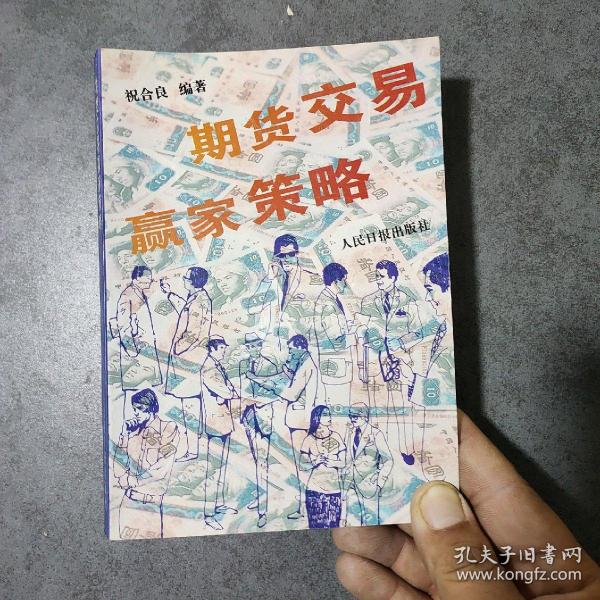 祝合良 编著
期货交易
赢家策略
人民日报出版社
孔夫子旧书网
www.kongfz.com